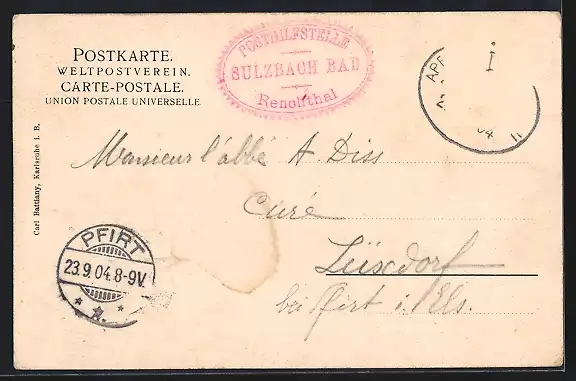 POSTKARTE.
WELTPOSTVEREIN.
CARTE-POSTALE.
UNION POSTALE UNIVERSELLE.
POSTHILFSTELLE
SULZBACH BAD
Renchthal
Monsieur l'abbé A. Diss
Curé
Lüxdorf
bei Pfirt i. Els.
Carl Battiany, Karlsruhe i. B.
PFIRT
23.9.04.8-9V.